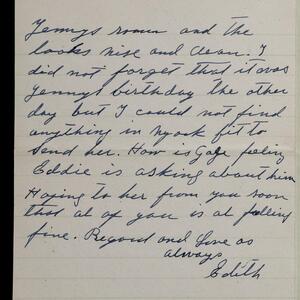 Jennys room and the
looks nise and clean. I
did not forget that it was
Jennys birthday the other
day but I could not find
anything in N york fit to
send her. How is Gafe feeling
Eddie is asking about him
Hoping to her from you soon
that al of you is al feeling
fine. Regard and Love as
always
Edith